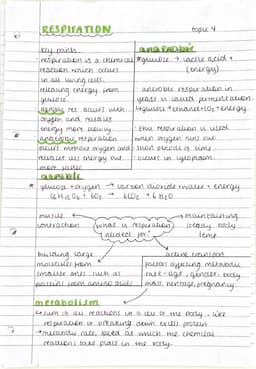 RESPIRATION
topic 4
key points
respiration is a chemical
reaction which occurs
in all living cells.
releasing energy from
glucose.
aerobic res. occurs with
oxygen and releases
energy more slowly.
anaerobic respiration
occurs without oxygen and
releases energy
more faster
anaerobic
*glucose → lactic acid +
(energy)
anerobic respiration in
yeast is called fermentation.
↳glucose → ethanol + CO2 + energy.
this respiration is used
when oxygen runs out
short periods of time.
occurs in cytoplasm.
aerobic
* glucose + oxygen → carbon dioxide + water + energy
C6H12O6 + 6O2 → 6CO2 + 6H2O
muscle
contraction
what is respiration
needed for?
maintaining
steady body
temp.
building large
molecules from
smaller ones such as
proteins from amino acids
active transport
factors affecting metabolic
rate - age, gender, body
mass, heritage, pregnancy.
metabolism
↳ sum of all reactions in a cell or the body. like
respiration or breaking down excess protein
→ metabolic rate, speed at which the chemical
reactions take place in the body.